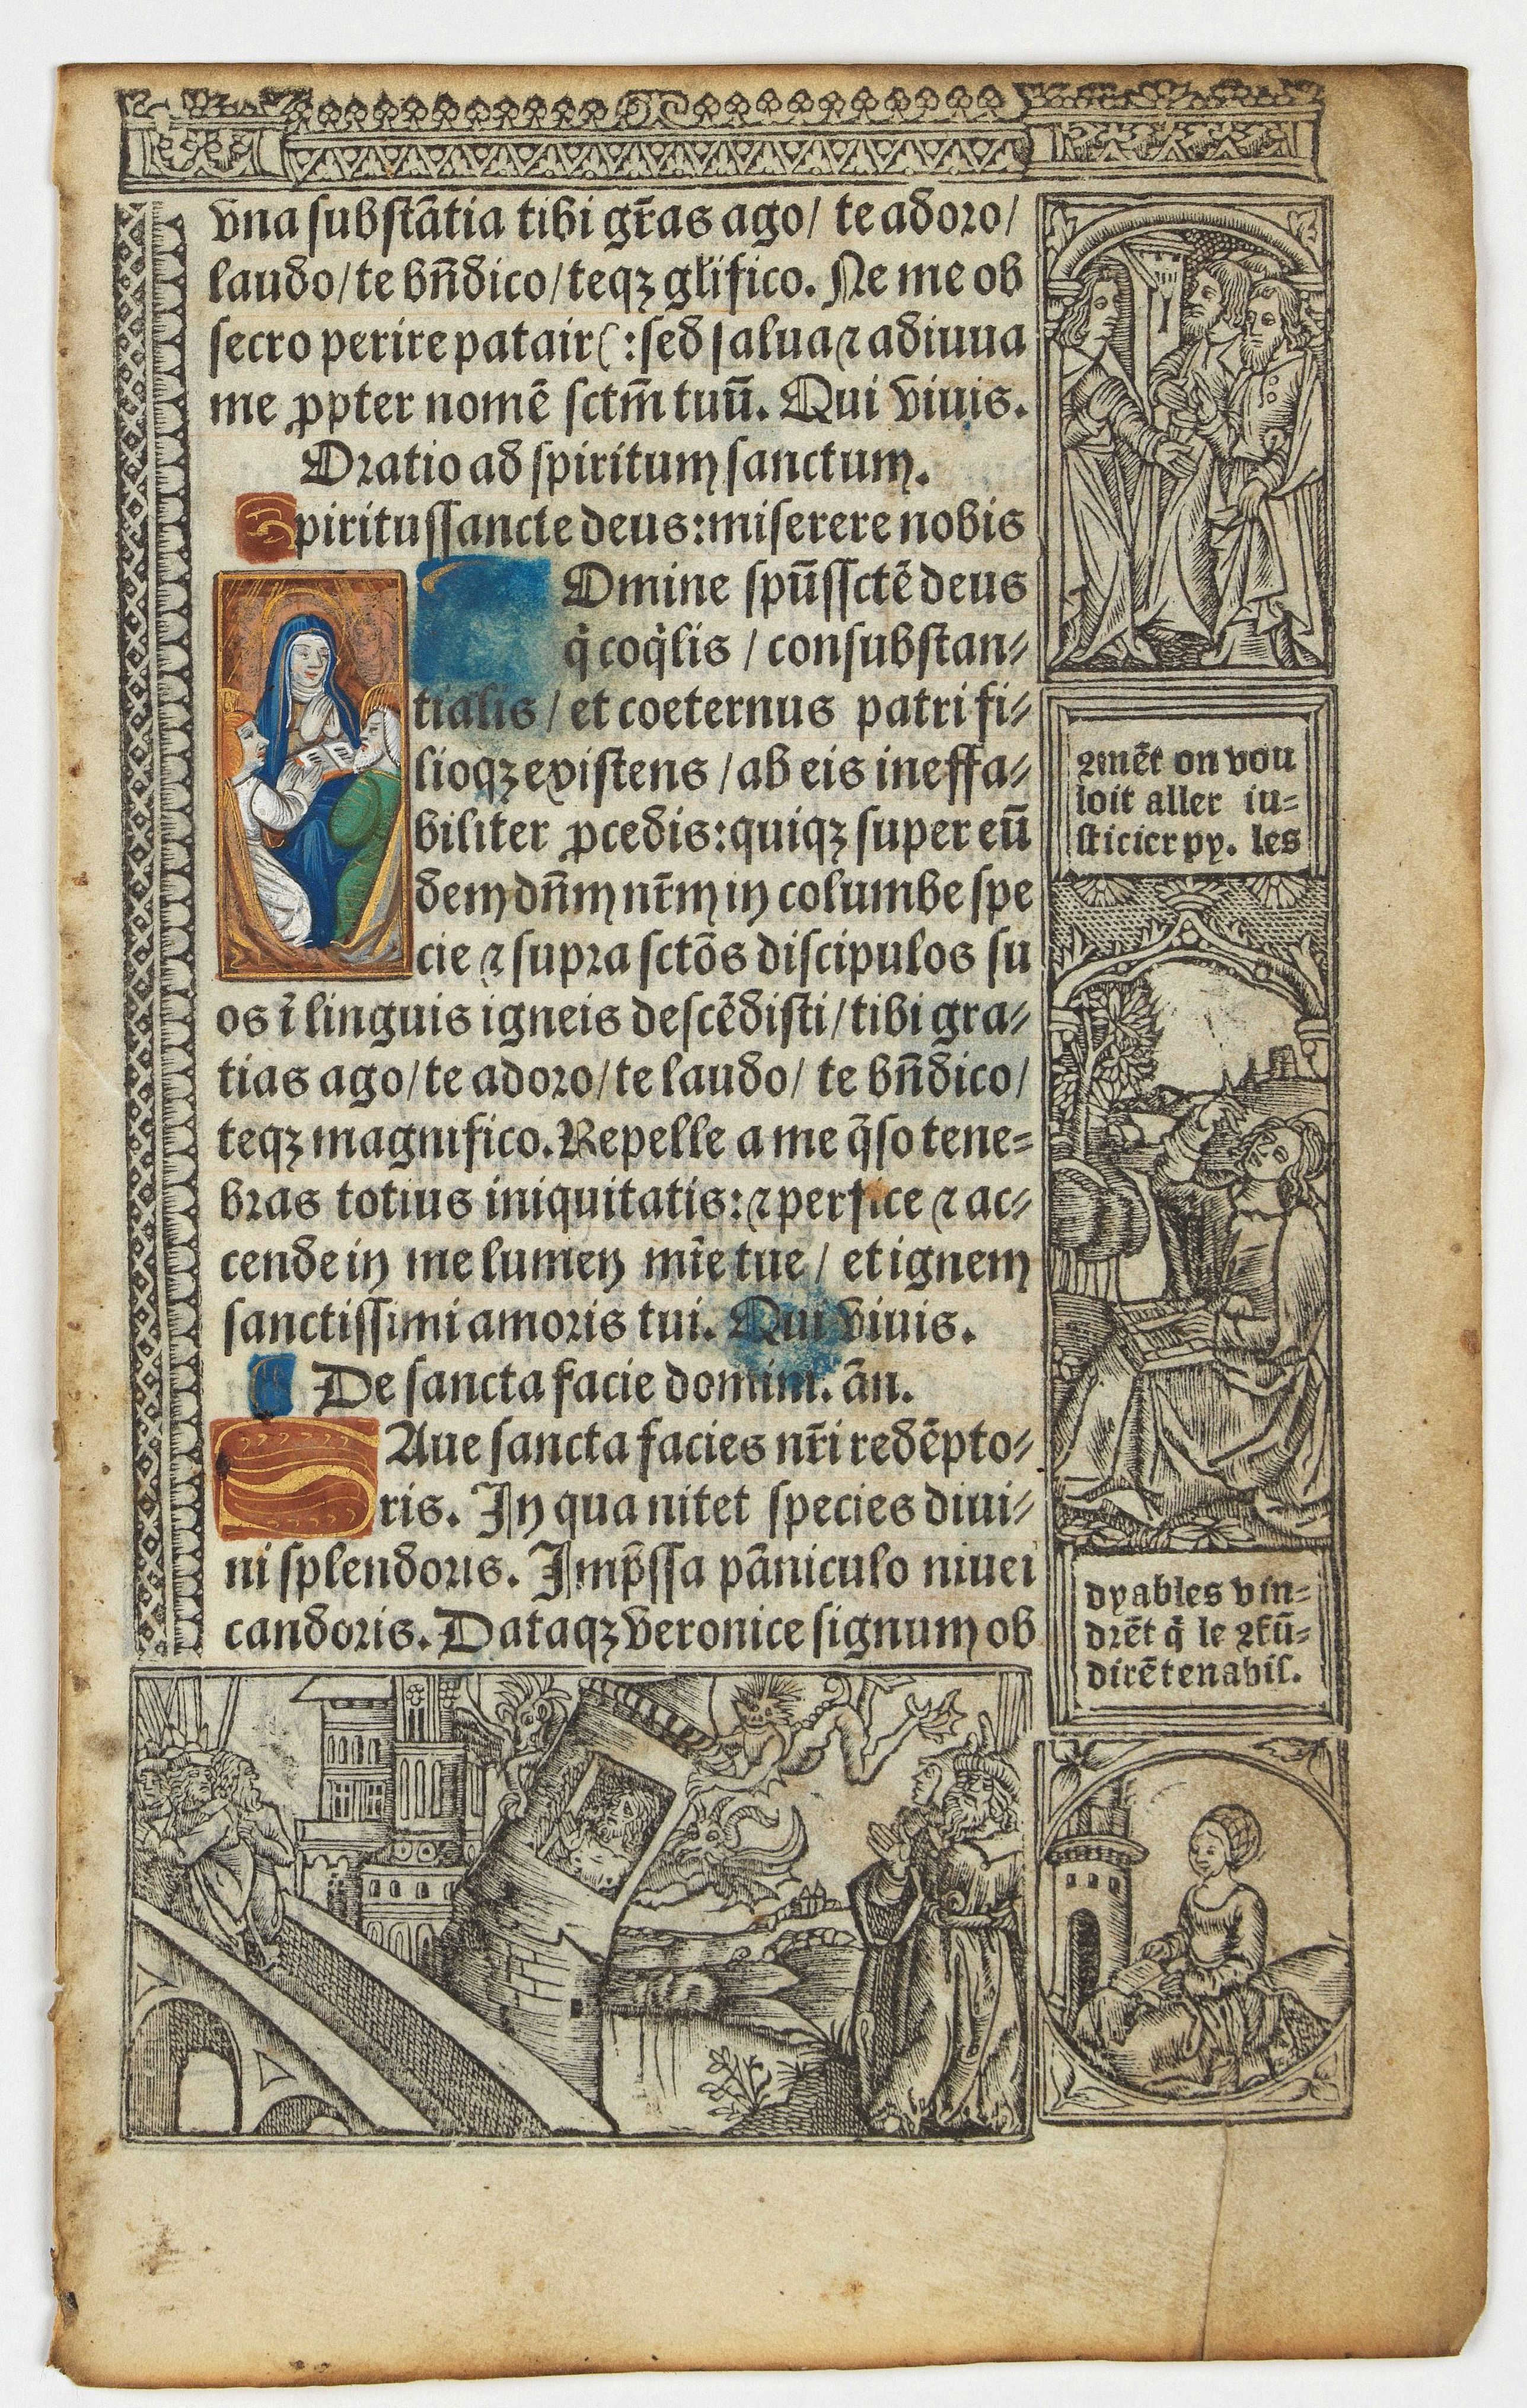 vna substātia tibi gr̄as ago/ te adoro/
laudo/te bn̄dico/teqꝫ gl̄ifico. Ne me ob
secro perire patair(:sed salua ⁊ adiuua
me ꝓpter nomē sctm̄ tuū. Qui viuis.
Oratio ad spiritum sanctum.
Spiritussancte deus:miserere nobis
Omine spūssctē deus
q̇ coq̇lis / consubstan-
tialis / et coeternus patri fi-
lioqꝫ existens /ab eis ineffa-
biliter ꝓcedis:quiqꝫ super eū
dem dn̄m nr̄m in columbe spe
cie ⁊ supra sctōs discipulos su
os ī linguis igneis descēdisti/tibi gra-
tias ago/te adoro/te laudo/ te bn̄dico/
teqꝫ magnifico.Repelle a me q̄so tene=
bras totius iniquitatis:⁊ perfice ⁊ ac-
cende in me lumen mīe tue / et ignem
sanctissimi amoris tui. Qui viuis.
¶ De sancta facie domini. ān.
SAue sancta facies nr̄i redēpto-
ris. In qua nitet species diui-
ni splendoris. Imp̄ssa pāniculo niuei
candoris. Dataqꝫ veronice signum ob
ꝯmēt on vou
loit aller iu=
sticier py. les
dyables vin=
drēt q̄ le ꝯfū=
dirēt en abis.